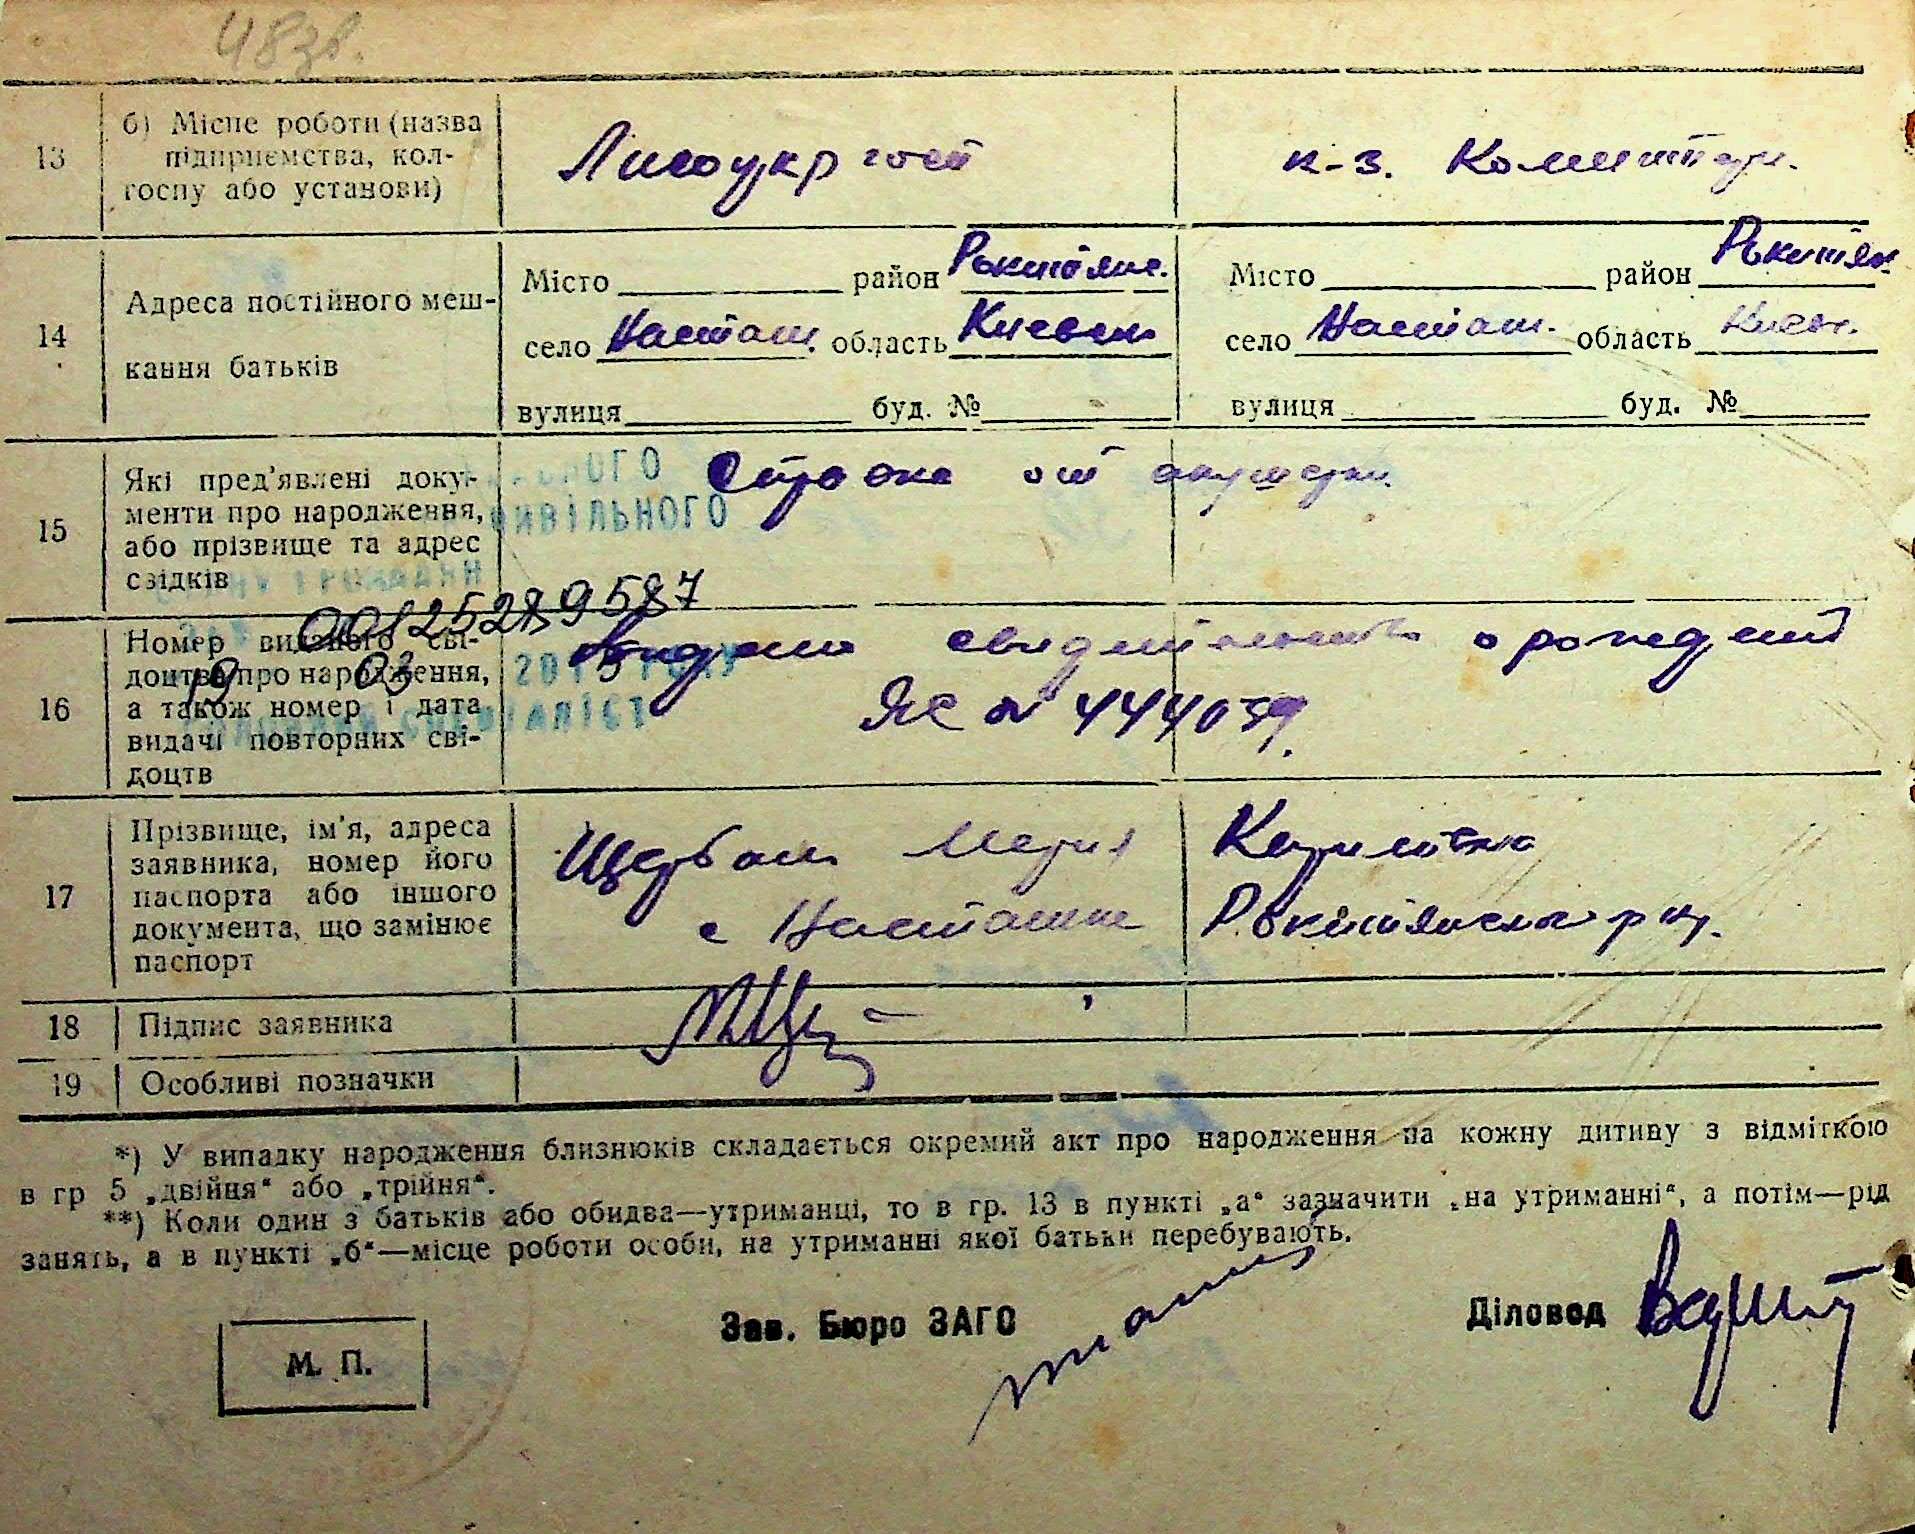 48 зв.
13 б) Місце роботи (назва підприємства, колгоспу або установи)
к-з. Коминтерн.
14 Адреса постійного мешкання батьків
Місто район Рокитянс. Місто район Рокитян.
село Насташ. область Киевск село Насташ. область Киев.
вулиця буд. № вулиця буд. №
15 Які пред'явлені документи про народження, або прізвище та адрес свідків
Справка от акушерки
ЦИВІЛЬНОГО
00125289587
19 03
16 Номер виданого свідоцтва про народження, а також номер і дата видачі повторних свідоцтв
Выдано свидетельство о рождении
ЯС № 444059.
СПЕЦІАЛІСТ
17 Прізвище, ім'я, адреса заявника, номер його паспорта або іншого документа, що замінює паспорт
Щербань Мария
с Насташка Рокитянского р-ну.
18 Підпис заявника
19 Особливі позначки
*) У випадку народження близнюків складається окремий акт про народження на кожну дитину з відміткою
в гр 5 „двійня“ або „трійня“.
**) Коли один з батьків або обидва—утриманці, то в гр. 13 в пункті „а“ зазначити „на утриманні“, а потім—рід
занять, а в пункті „б“—місце роботи особи, на утриманні якої батьки перебувають.
Зав. Бюро ЗАГС Діловод
М. П.